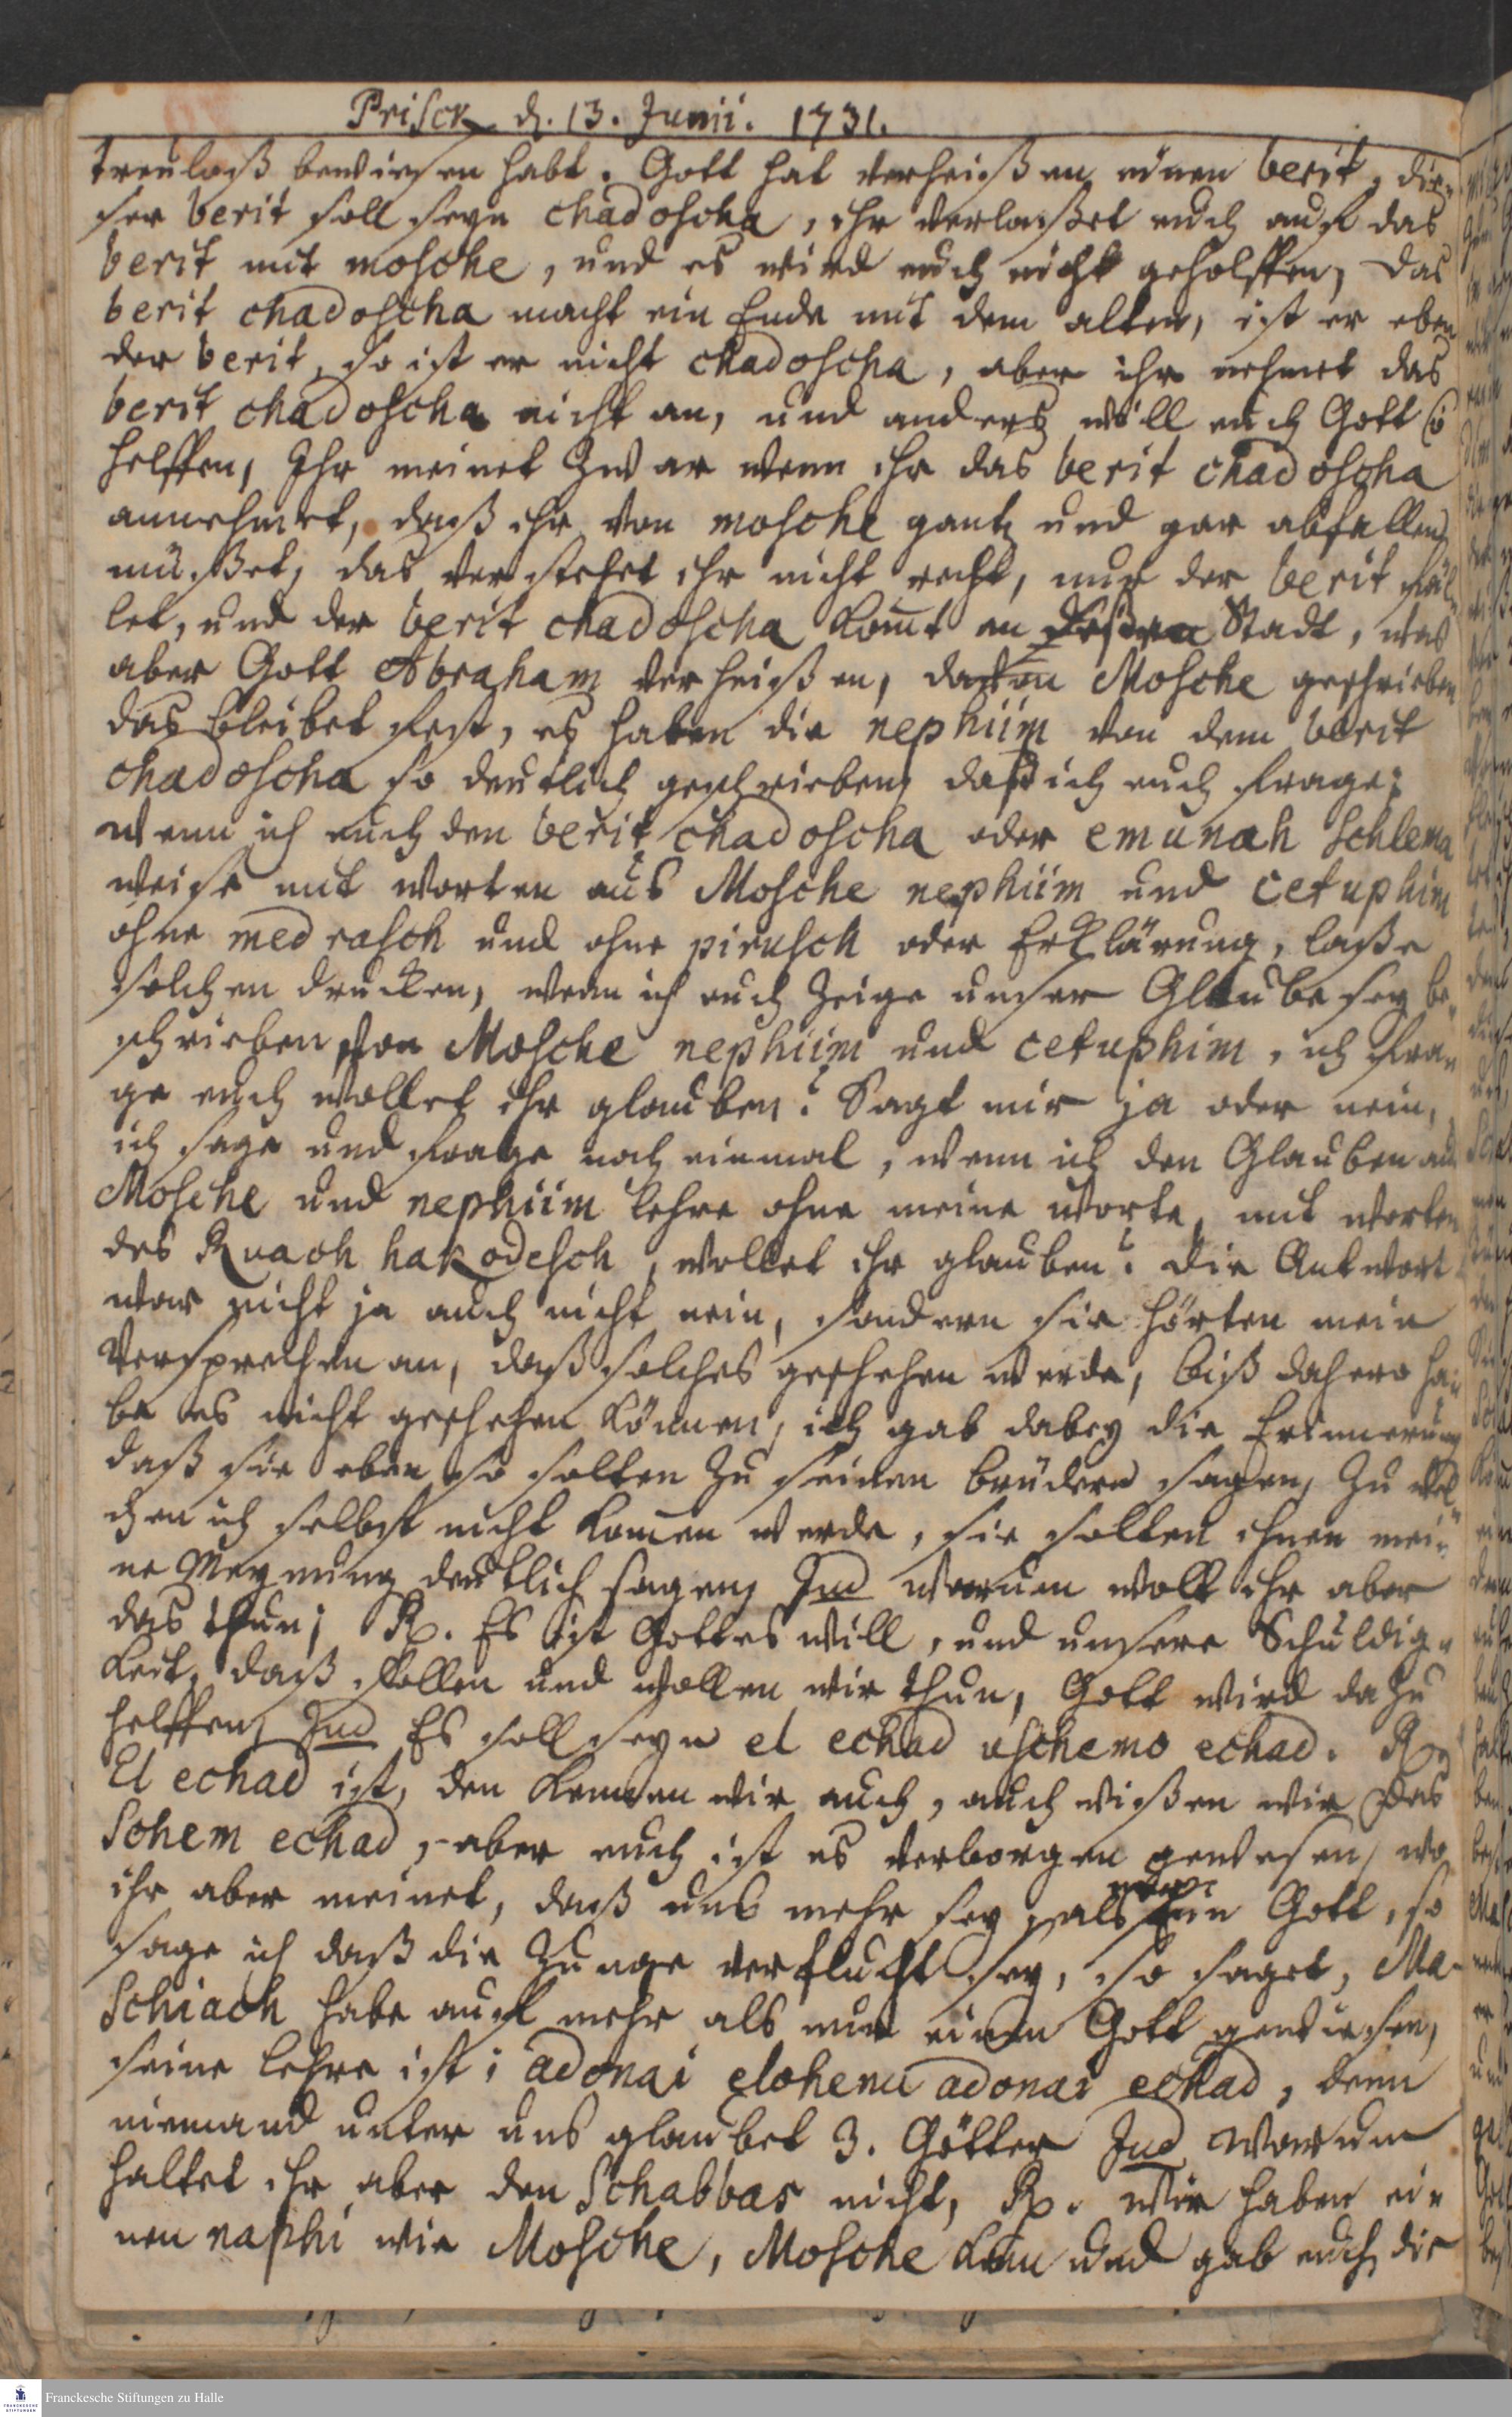 Prisck d. 13. Junii. 1731.
treuloß bewiesen habt. Gott hat verheißen einen berit, die-
ser berit soll seyn chadoscha, ihr verlaßet euch auf das
berit mit mosche, und es wird euch nicht geholffen, das
berit chadoscha macht ein Ende mit dem alten, ist er eben
der berit, so ist er nicht chadoscha, aber ihr nehmet das
berit chadoscha nicht an, und anders will euch Gott
helffen, Ihr meinet zwar wenn ihr das berit chadoscha
annehmet, daß ihr von mosche gantz und gar abfallen
müßet, das verstehet ihr nicht recht, nur der berit fäl-
let, und der berit chadoscha komt an deßen Stadt, was
aber Gott Abraham verheißen, davon Mosche geschrieben
das bleibet fest, es haben die nephiim von dem berit
chadoscha so deutlich geschrieben, daß ich euch frage;
wenn ich euch den berit chadoscha oder emunah schlema
weise mit worten aus Mosche nephiim und cetuphim
ohne medrasch und ohne pirusch oder Erklärung, laße
solchen drucken, wenn ich euch zeige unser Glaube sey be-
schrieben von Mosche nephiim und cetuphim, ich fra-
ge euch wollet ihr glauben? Sagt mir ja oder nein,
ich sage und frage noch einmal, wenn ich den Glauben aus
Mosche und nephiim lehre ohne meine worte, mit worten
des Ruach hakodesch, wollet ihr glauben? die Antwort
war nicht ja auch nicht nein, sondern sie hörten mein
Versprechen an, daß solches geschehen werde, biß dahero ha-
be es nicht geschehen können, ich gab dabey die Erinnerung
daß sie eben so solten zu seinen brüdern sagen, zu wel-
chen ich selbst nicht komen werde, sie solten ihnen mei-
ne Meynung deutlich sagen, Jud warum wolt ihr aber
das thun; R. Es ist Gottes will, und unsere Schuldig-
keit, daß sollen und wollen wir thun, Gott wird dazu
helffen, Jud Es soll seyn el echad uschemo echad. R.
El echad ist, den kennen wir auch, auch wißen wir das
Schem echad, aber euch ist es verborgen gewesen, wo
ihr aber meinet, daß uns mehr sey als ein Gott, so
sage ich daß die Zunge verflucht sey, so saget, Ma-
schiach habe auch mehr als nur einen Gott gewiesen,
seine lehre ist: adonai elohenu adonai echad, denn
niemand unter uns glaubet 3. Götter Jud warum
haltet ihr aber den Schabbas nicht, R. wir haben ei-
nen naphi wie Mosche, Mosche kam und gab euch die
Franckesche Stiftungen zu Halle